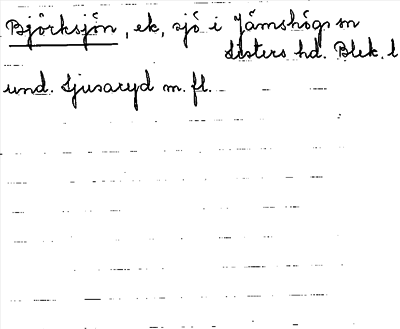 Björksjön, ek, sjö i Jämshögs sn
Listers hd. Blek. l
und. Ljusaryd m. fl.